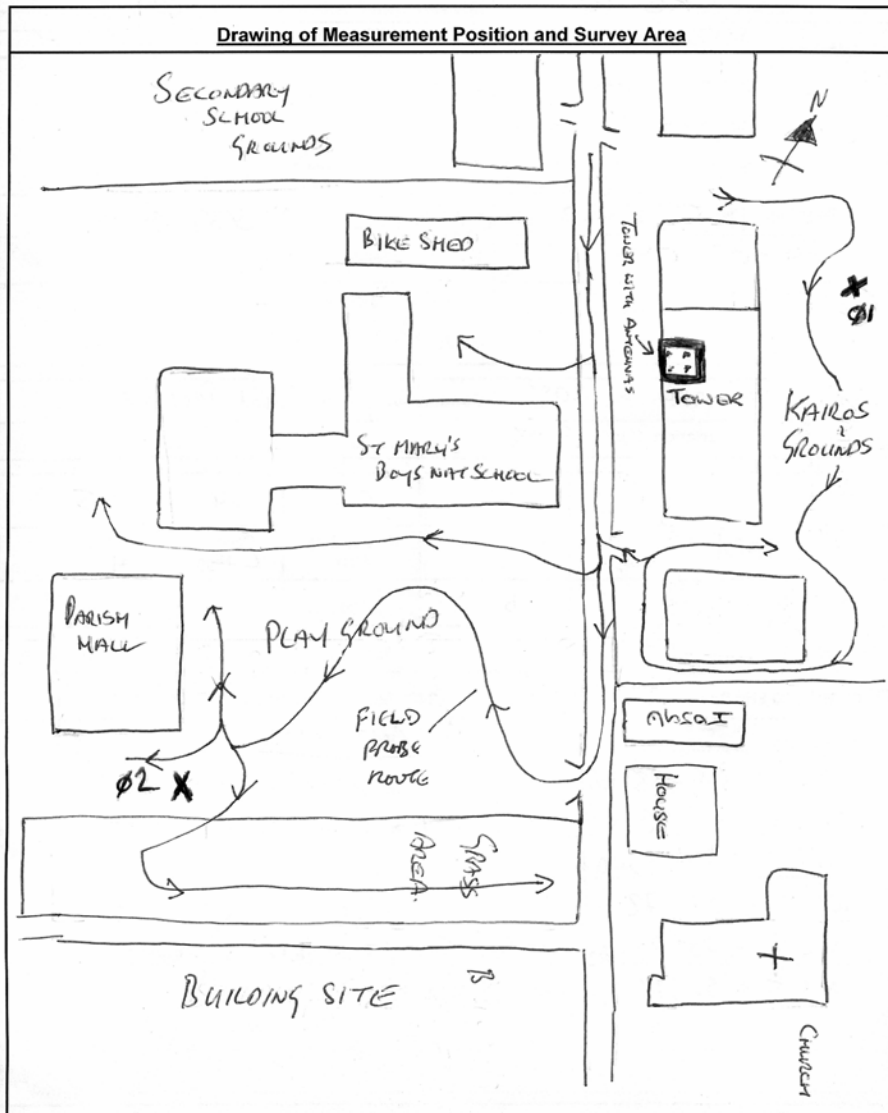 Drawing of Measurement Position and Survey Area
SECONDARY
SCHOOL
GROUNDS
N
BIKE SHED
TOWER WITH ANTENNAS
X
Ø1
TOWER
KAIROS
&
GROUNDS
ST MARY'S
BOYS NAT SCHOOL
PARISH
HALL
PLAY GROUND
FIELD
PROBE
ROUTE
HOUSE
Ø2 X
GRASS
AREA.
BUILDING SITE
B
CHURCH